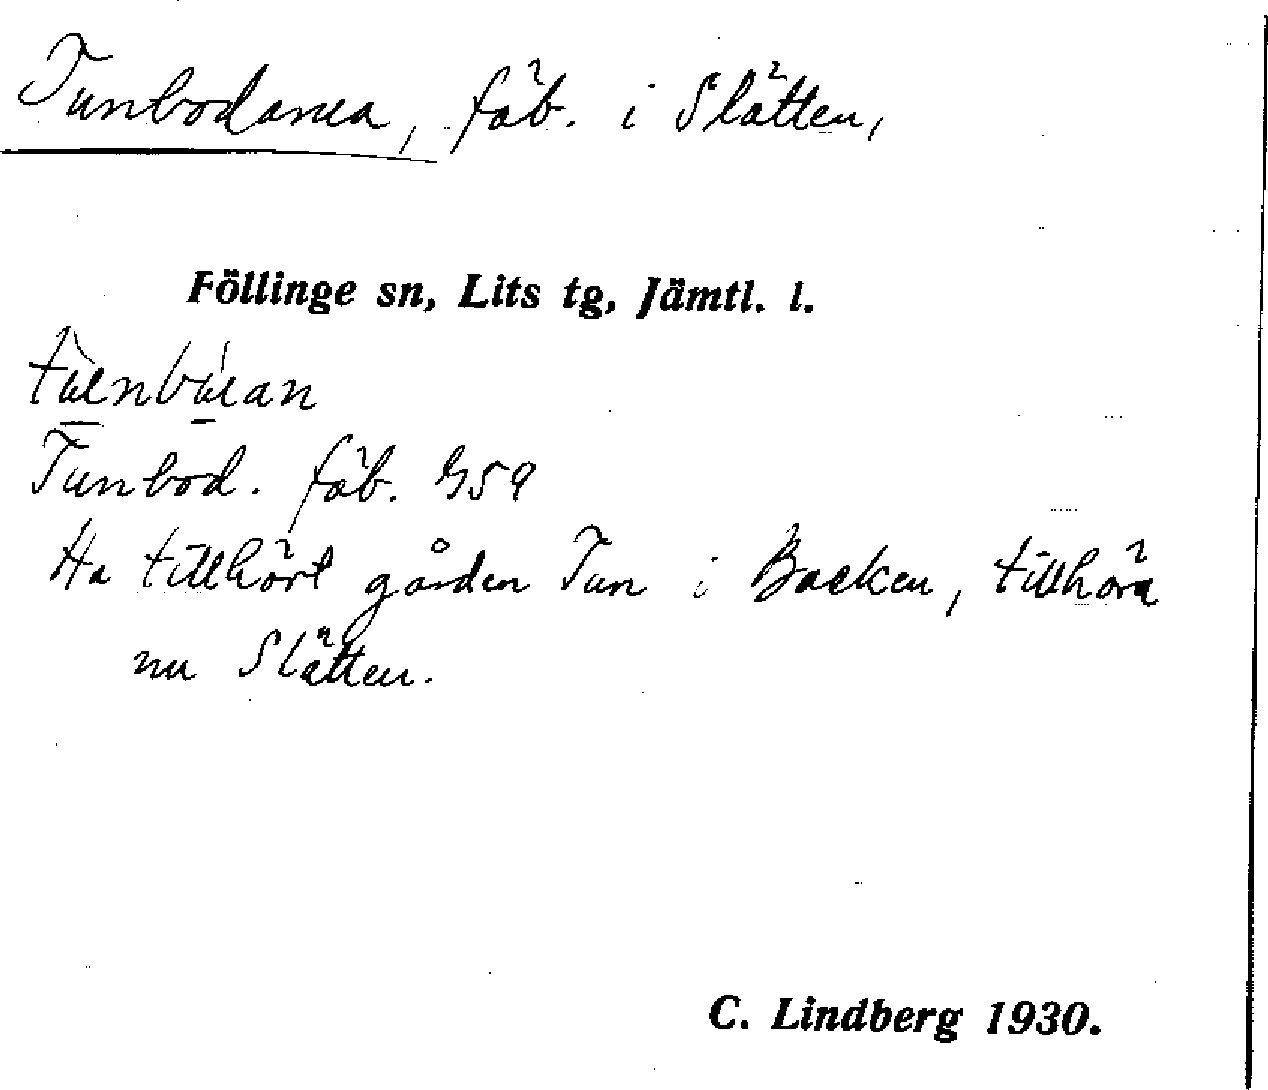 Tunbodarna, fäb. i Slätten,
Föllinge sn, Lits tg, Jämtl. l.
Tunbod. fäb. G59
Ha tillhört gården Tun i Backen, tillhöra
nu Slätten.
C. Lindberg 1930.